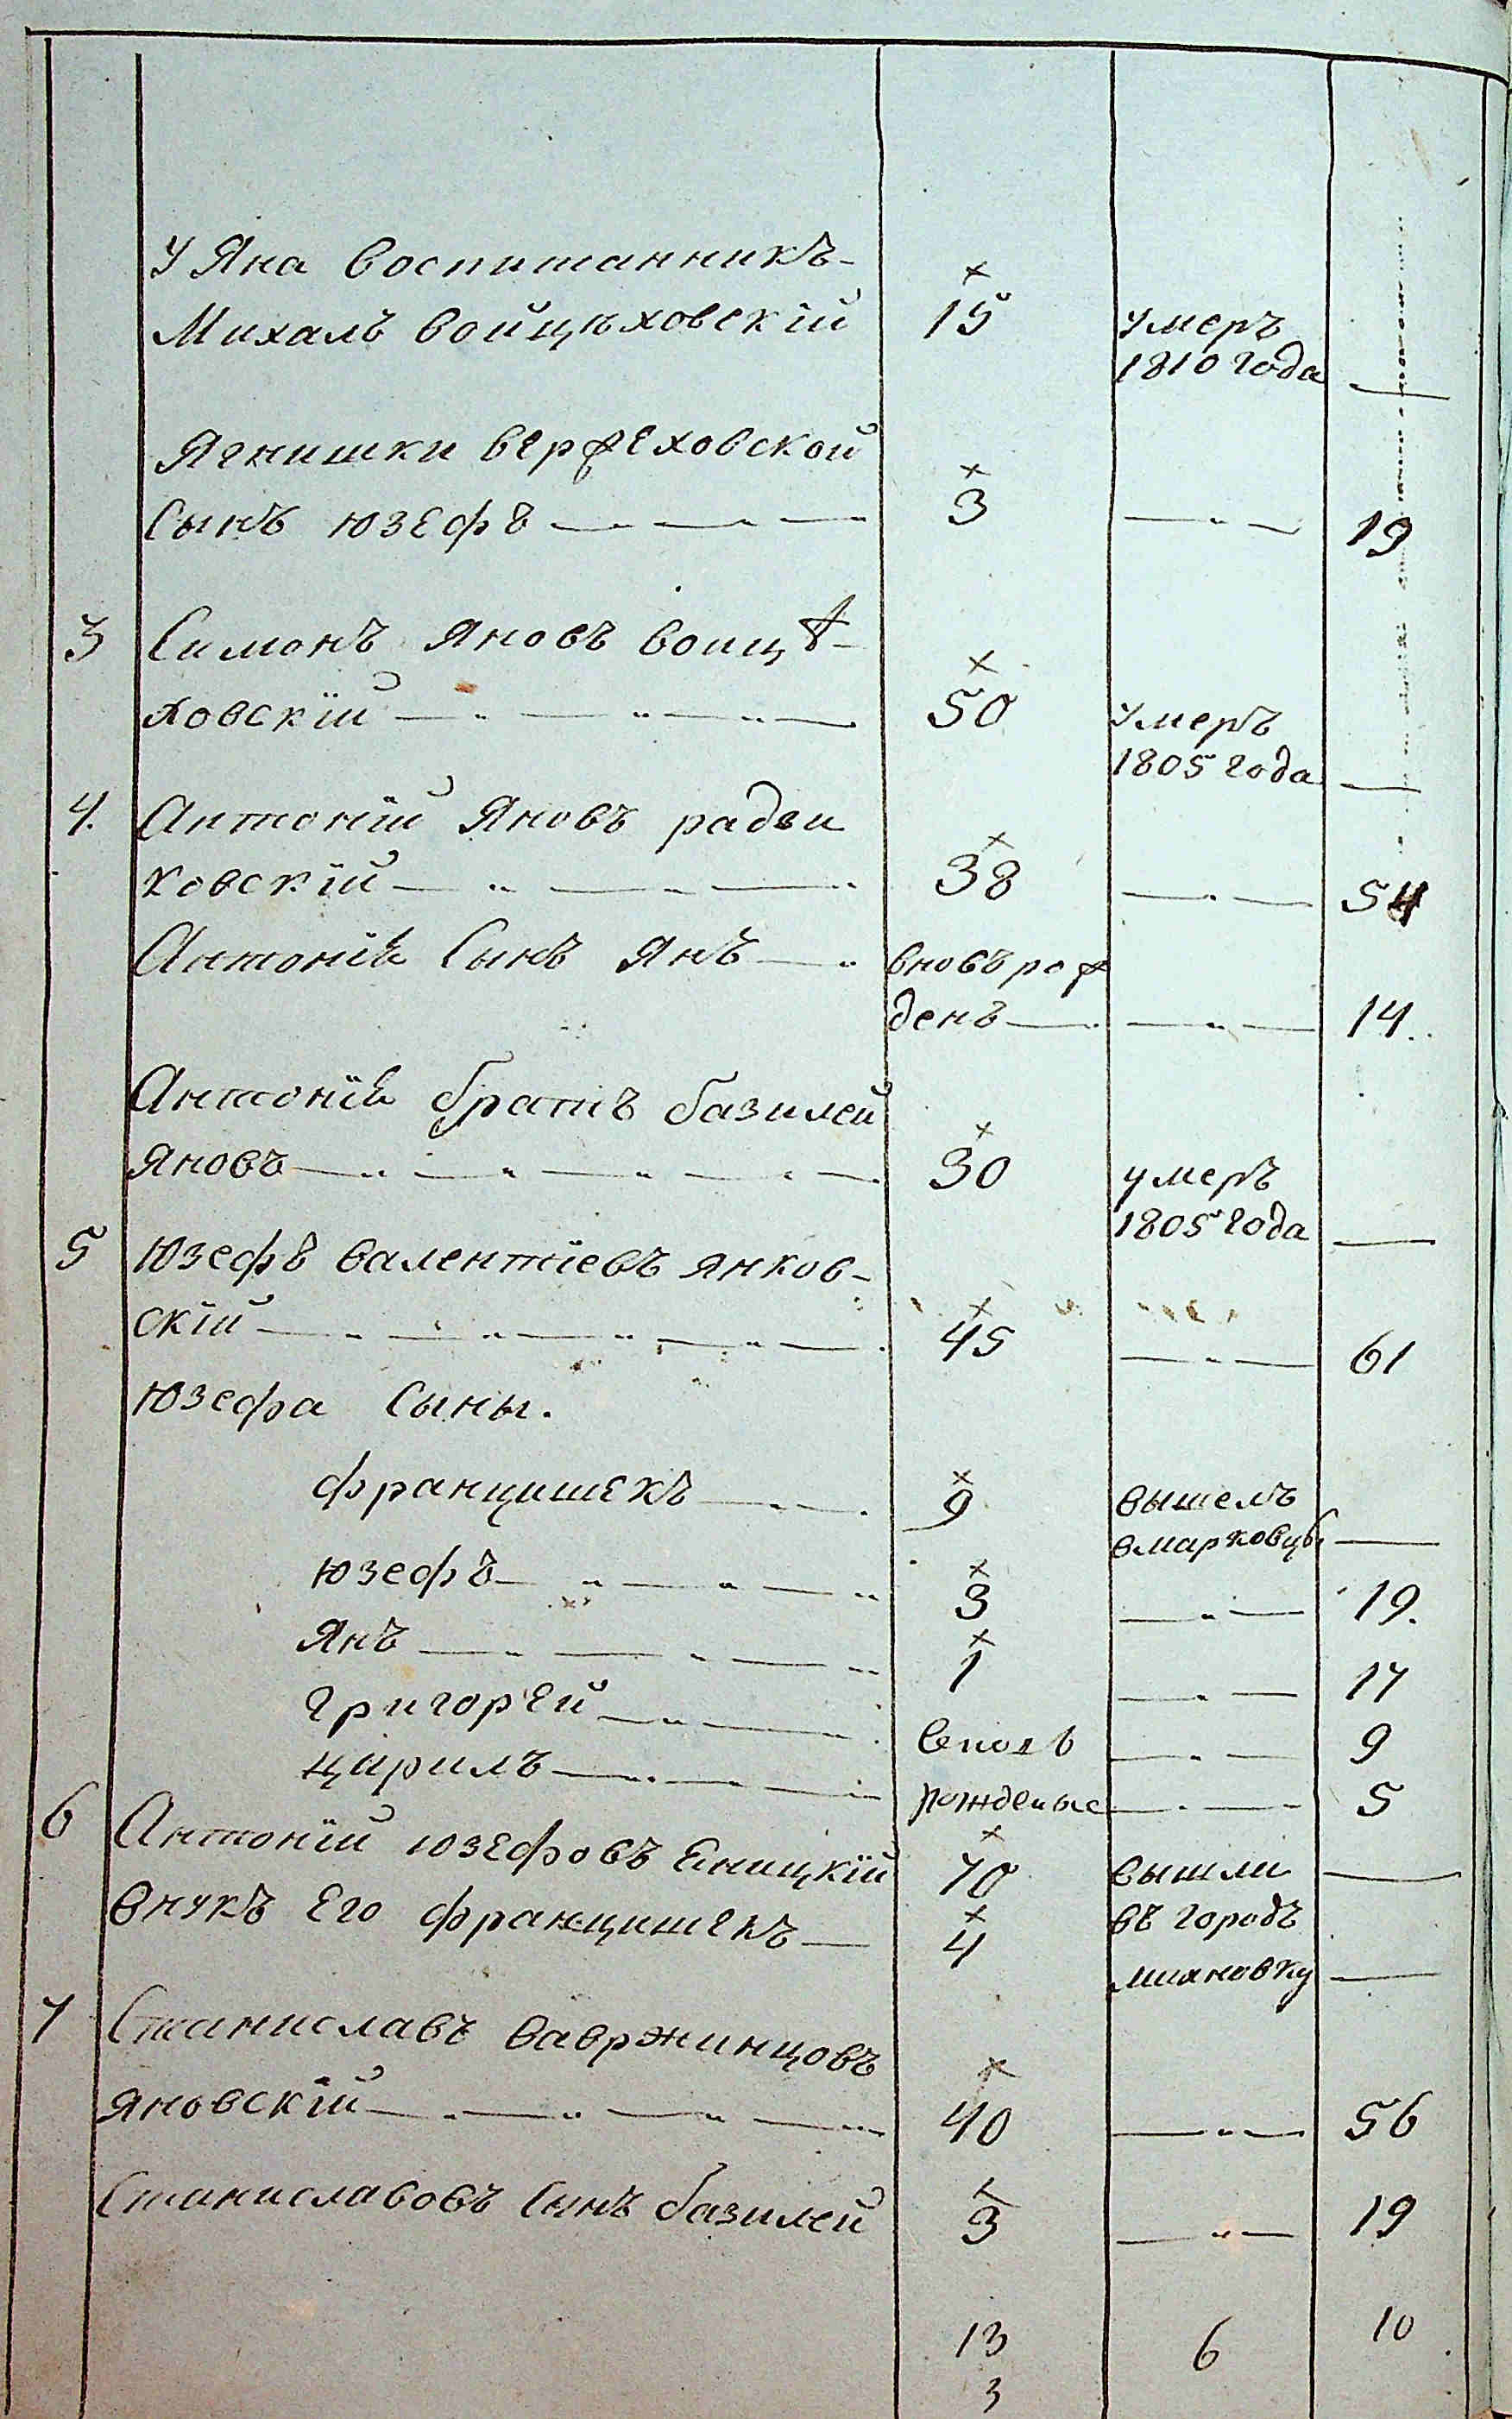 У Яна воспитанникъ-
Михалъ войцѣховскій × 15 умеръ
1810 года —
Ягнишки вержеховской
Сынъ юзефъ — × 3 — 19
3 Симонъ Яновъ воицѣ-
ховскій — × 50 умеръ
1805 года —
4. Антоній Яновъ радзи
ховскій — × 38 — 54
Антонія Сынъ Янъ — вновь рож
денъ — — 14.
Антонія братъ базилей
Яновъ — × 30 умеръ
1805 года —
5 Юзефъ валентіевъ янков-
скій — × 45 — 61
Юзефа Сыны.
францишекъ — × 9 вышелъ
вмарковцы —
юзефъ — × 3 — 19.
Янъ — × 1 — 17
григорей — вновь — 9
цирилъ — рожденые — 5
6 Антоній юзефовъ Еницкій × 70 вышли —
внукъ Его францишекъ — × 4 въ городъ
—
7 Станиславъ вавржинцовъ
яновскій — × 40 — 56
Станиславовъ Сынъ базилей × 3 — 19
13 6 10
3